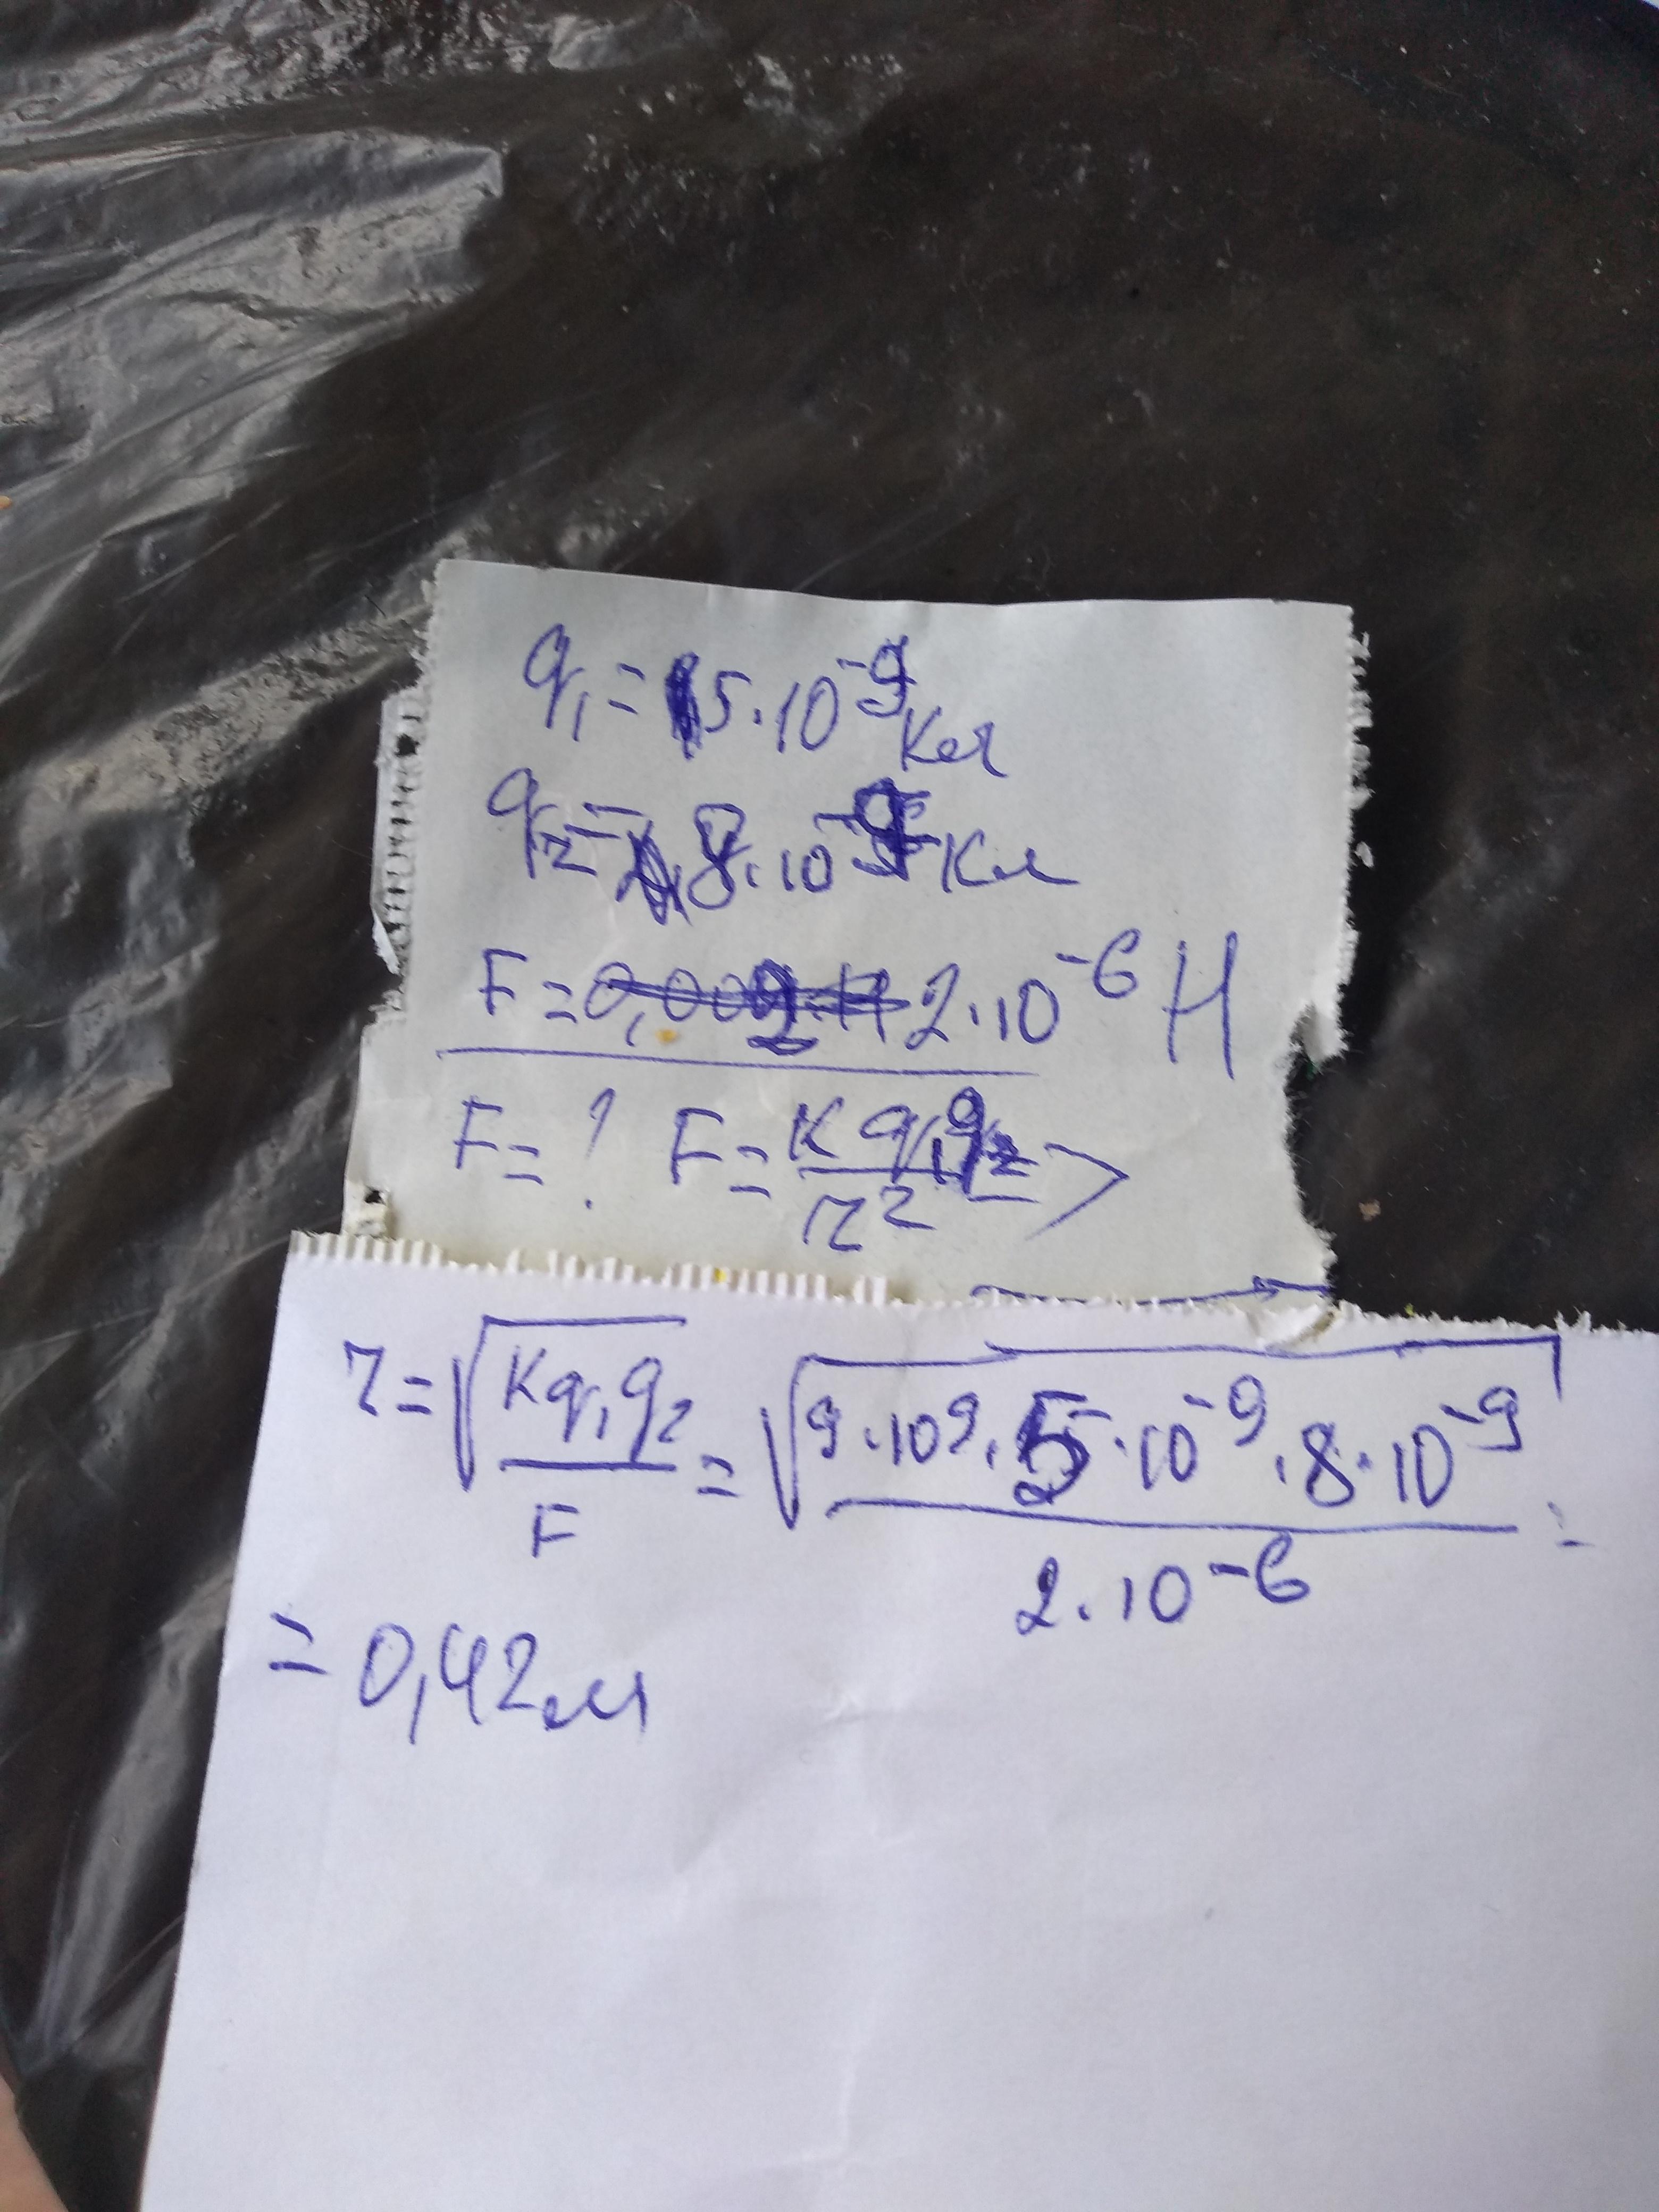 q₁ = 5·10⁻⁹ Кл
q₂ = 8·10⁻⁹ Кл
F = 2·10⁻⁶ Н
F = ? F = Kq₁q₂/r² >
r = √(Kq₁q₂/F) = √(9·10⁹·5·10⁻⁹·8·10⁻⁹/2·10⁻⁶) =
= 0,42 м